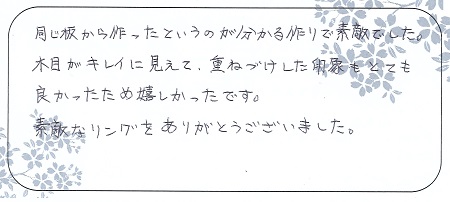 同じ板から作ったというのが分かる作りで素敵でした。
木目がキレイに見えて、重ねづけした印象もとても
良かったため嬉しかったです。
素敵なリングをありがとうございました。